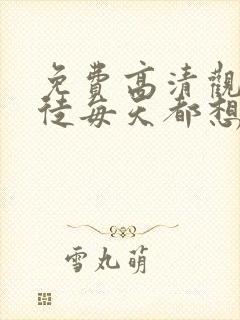 免費高清觀
徒每天都想
雪丸萌